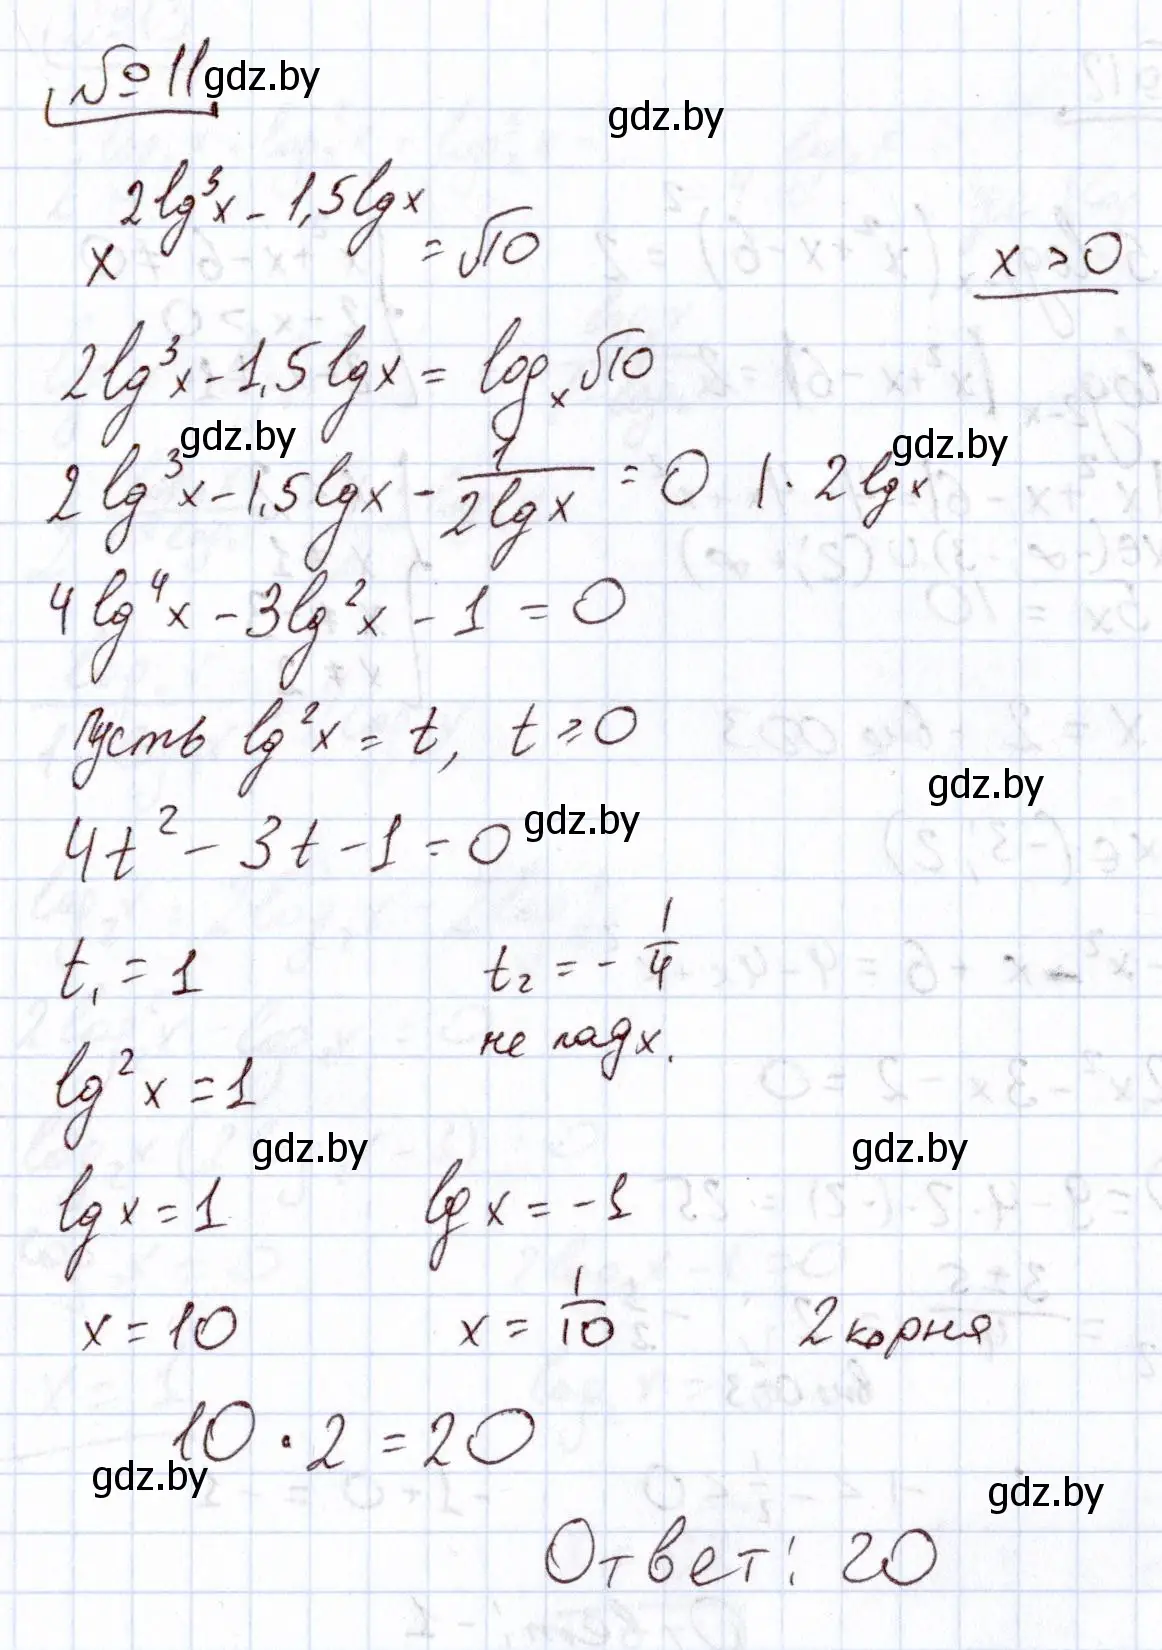 № 11 gdz.by
gdz.by
x^(2lg³x - 1,5lgx) = √10
x > 0
2lg³x - 1,5lgx = logₓ√10
gdz.by
gdz.by
2lg³x - 1,5lgx - 1/(2lgx) = 0 | · 2lgx
4lg⁴x - 3lg²x - 1 = 0
Пусть lg²x = t, t ≥ 0
gdz.by
4t² - 3t - 1 = 0 gdz.by
t₁ = 1 t₂ = - 1/4
не подх.
lg²x = 1
gdz.by gdz.by
lgx = 1 lgx = -1
x = 10 x = 1/10 2 корня
10 · 2 = 20
gdz.by gdz.by
Ответ: 20